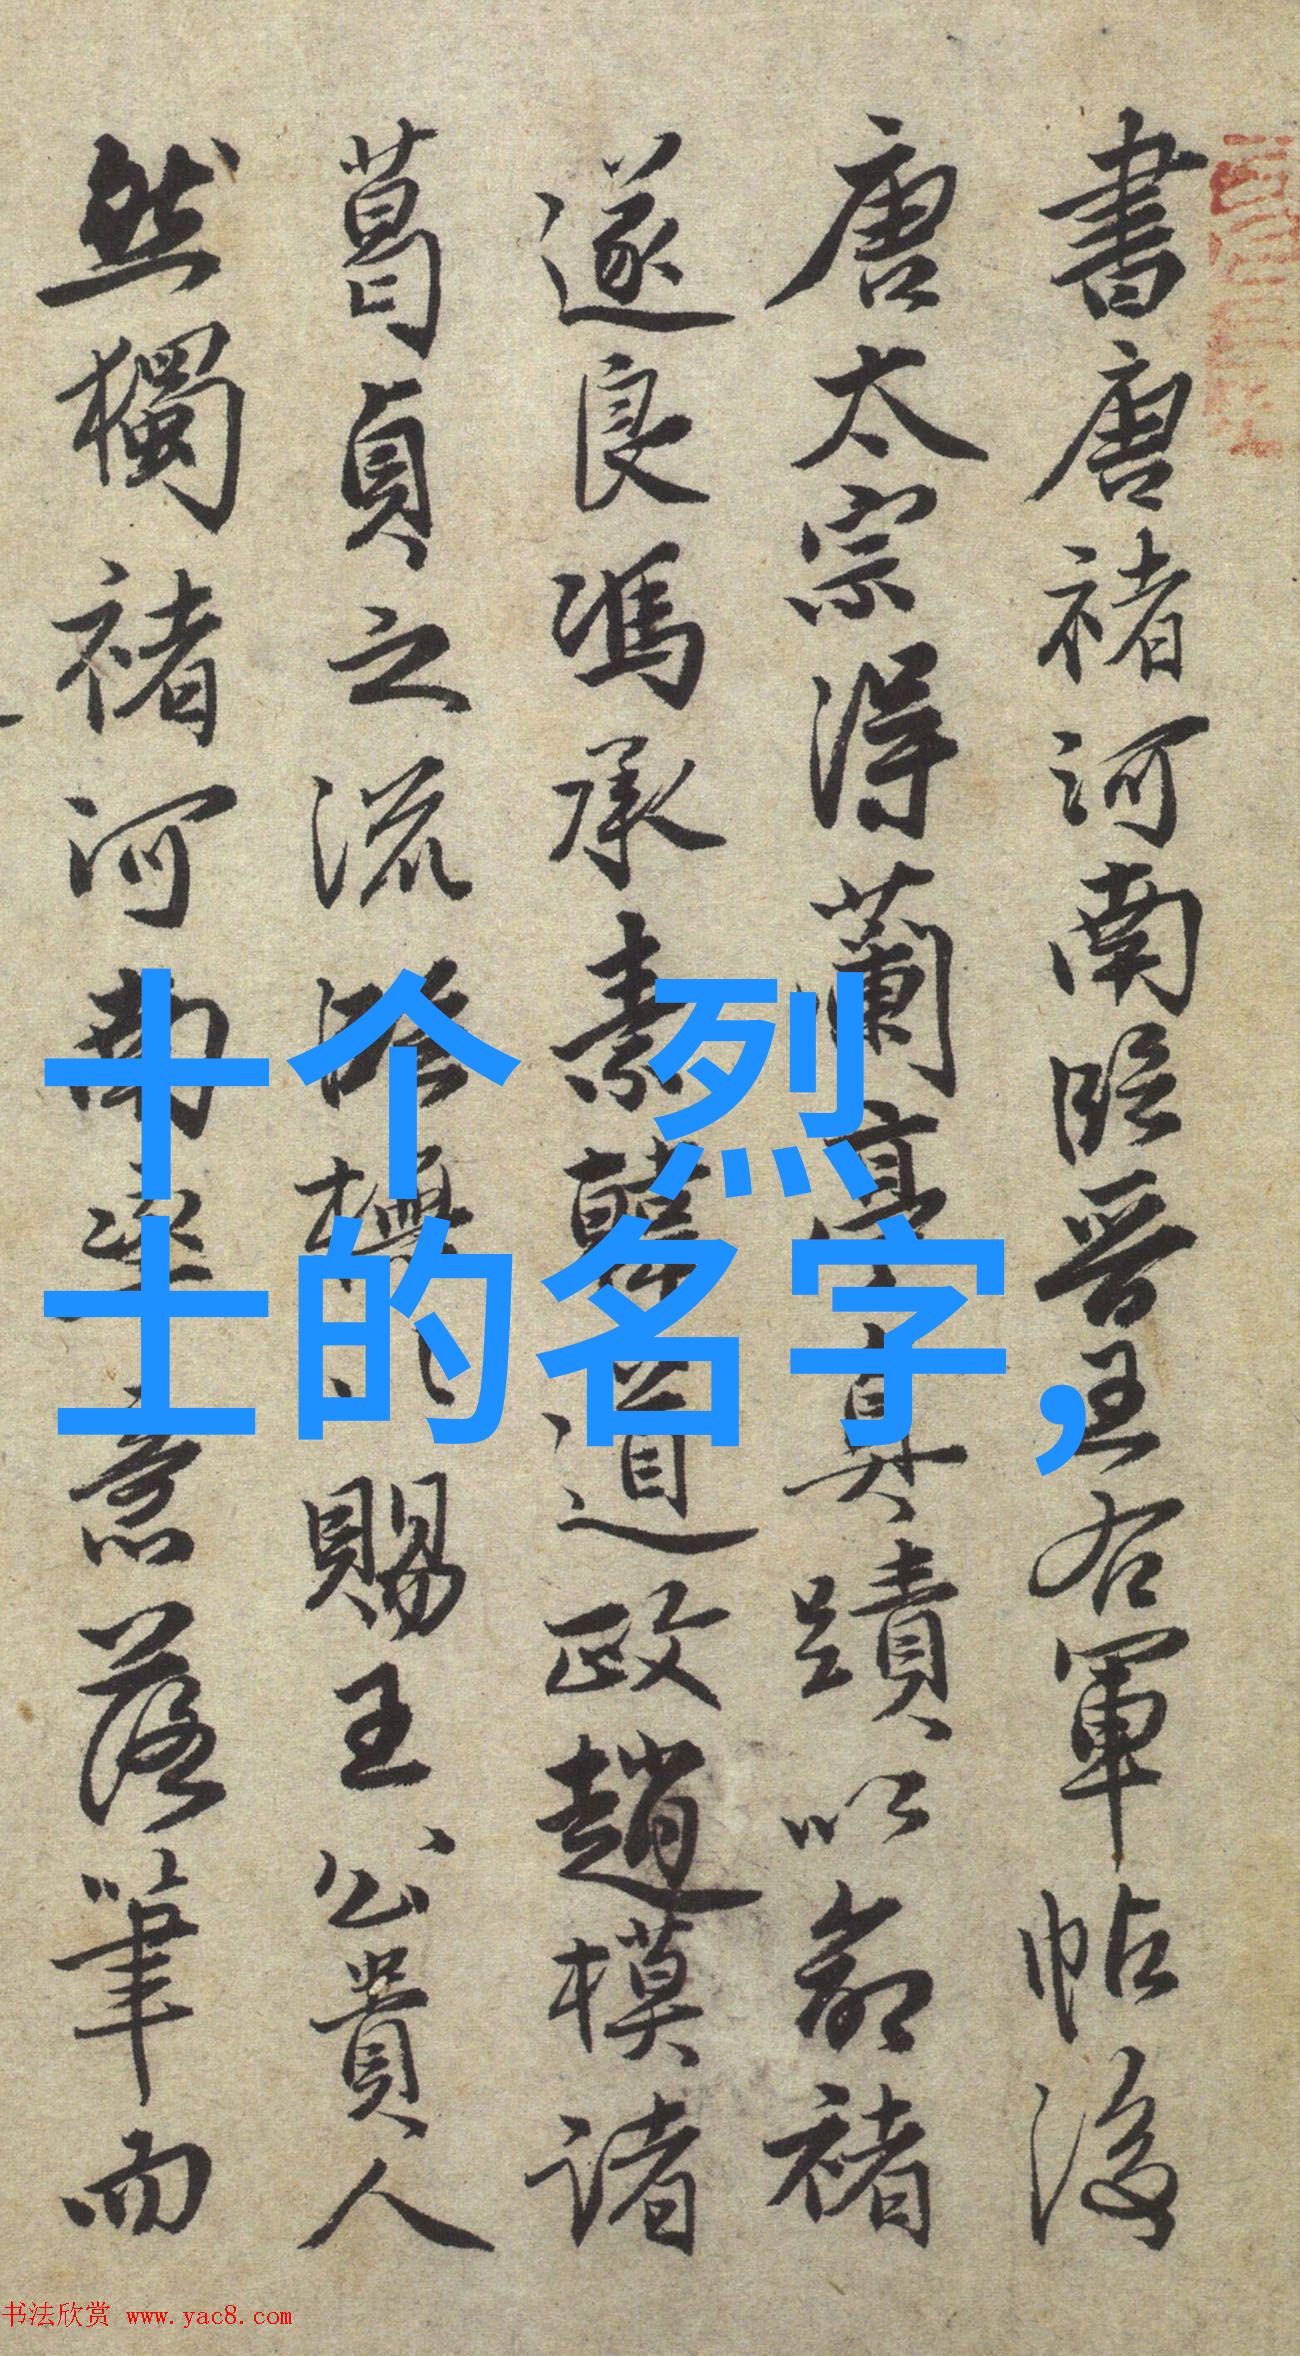 書唐禇河南臨晉王右軍帖後
唐太宗得蘭亭真蹟以命褚
遂良馮承素韓道政趙模諸
葛貞之流
賜王公貴人
然獨褚河南
意落筆而
十个 烈
士的名字，
书法欣赏 www.yac8.com